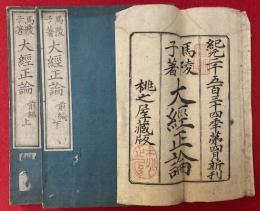 紀元二千五百三十四年第四月新刊
馬陵
子著
大經正論
桃之屋藏版
馬陵
子著
大經正論
前編下
馬陵
子著
大經正論
前編上